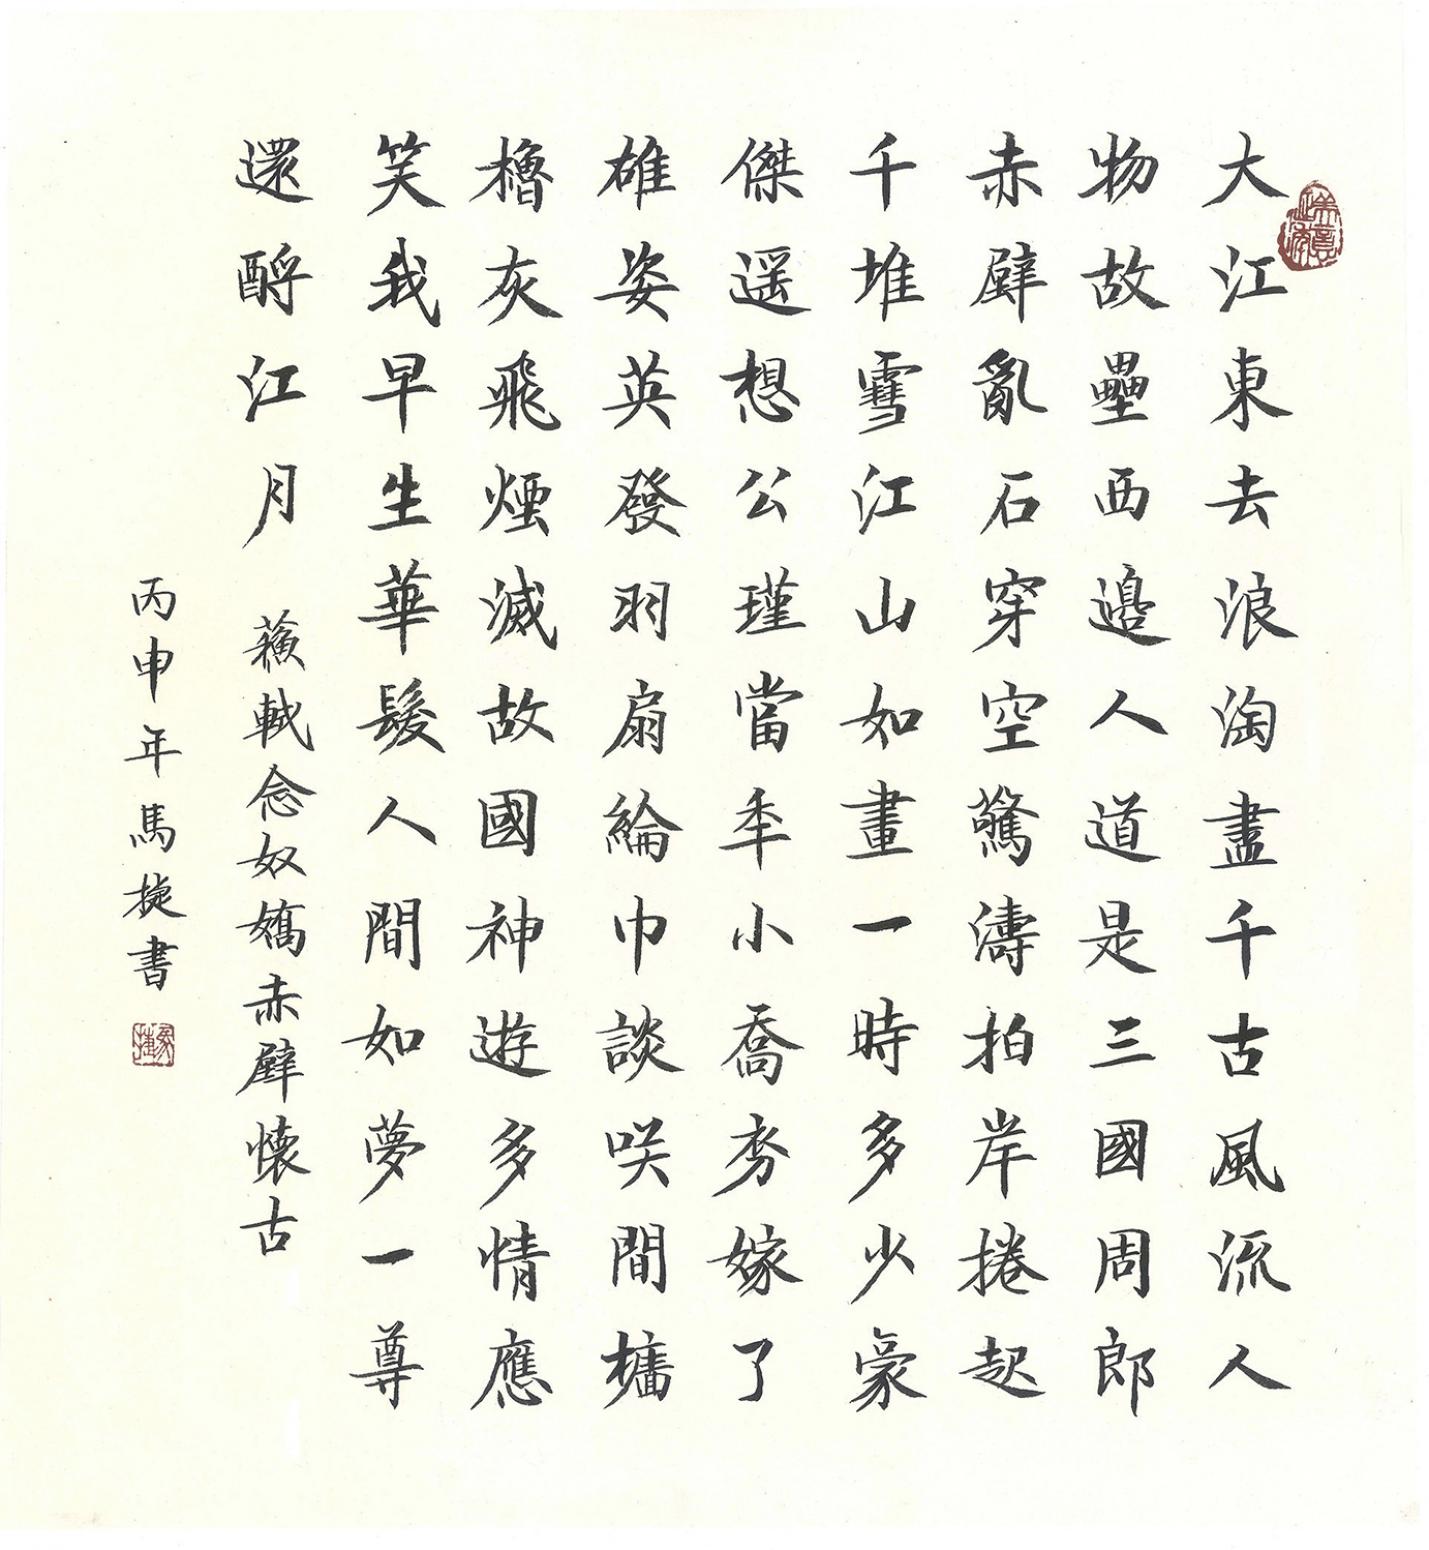 大江東去浪淘盡千古風流人
物故壘西邊人道是三國周郎
赤壁亂石穿空驚濤拍岸捲起
千堆雪江山如畫一時多少豪
傑遥想公瑾當年小喬初嫁了
雄姿英發羽扇綸巾談咲間檣
櫓灰飛煙滅故國神遊多情應
笑我早生華髮人間如夢一尊
還酹江月 蘇軾念奴嬌赤壁懷古
丙申年馬捷書
馬捷